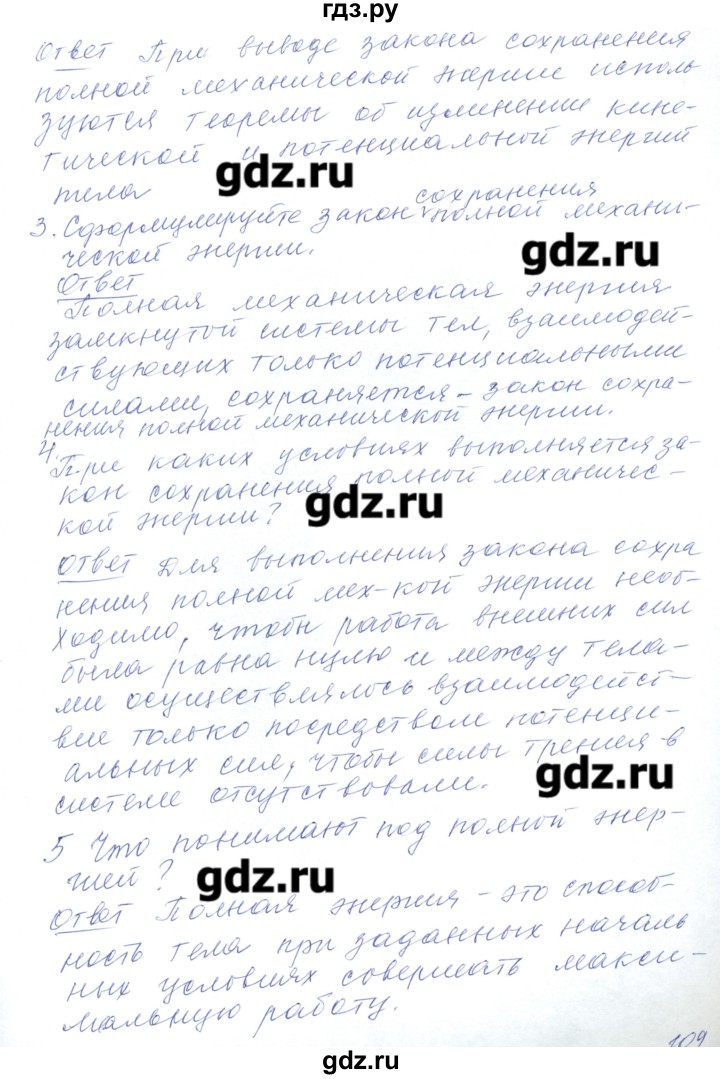 гдз.ру
Ответ При выводе закона сохранения
полной механической энергии исполь
зуются теоремы об изменение кине-
тической и потенциальной энергий
gdz.ru
тела
сохранения
3. Сформулируйте закон полной механи-
ческой энергии.
gdz.ru
Ответ
Полная механическая энергия
замкнутой системы тел, взаимодей-
ствующих только потенциальными
силами, сохраняется - закон сохра-
нения полной механической энергии.
4.
При каких условиях выполняется за-
кон сохранения полной механичес-
gdz.ru
кой энергии?
Ответ Для выполнения закона сохра
нения полной мех-кой энергии необ-
ходимо, чтобы работа внешних сил
была равна нулю и между тела-
ми осуществлялось взаимодейст-
вие только посредством потенци-
альных сил, чтобы силы трения в
gdz.ru
системе отсутствовали.
5 Что понимают под полной энер-
гией?
gdz.ru
Ответ Полная энергия - это способ-
ность тела при заданных началь
ных условиях совершать макси-
мальную работу.
109
gdz.ru